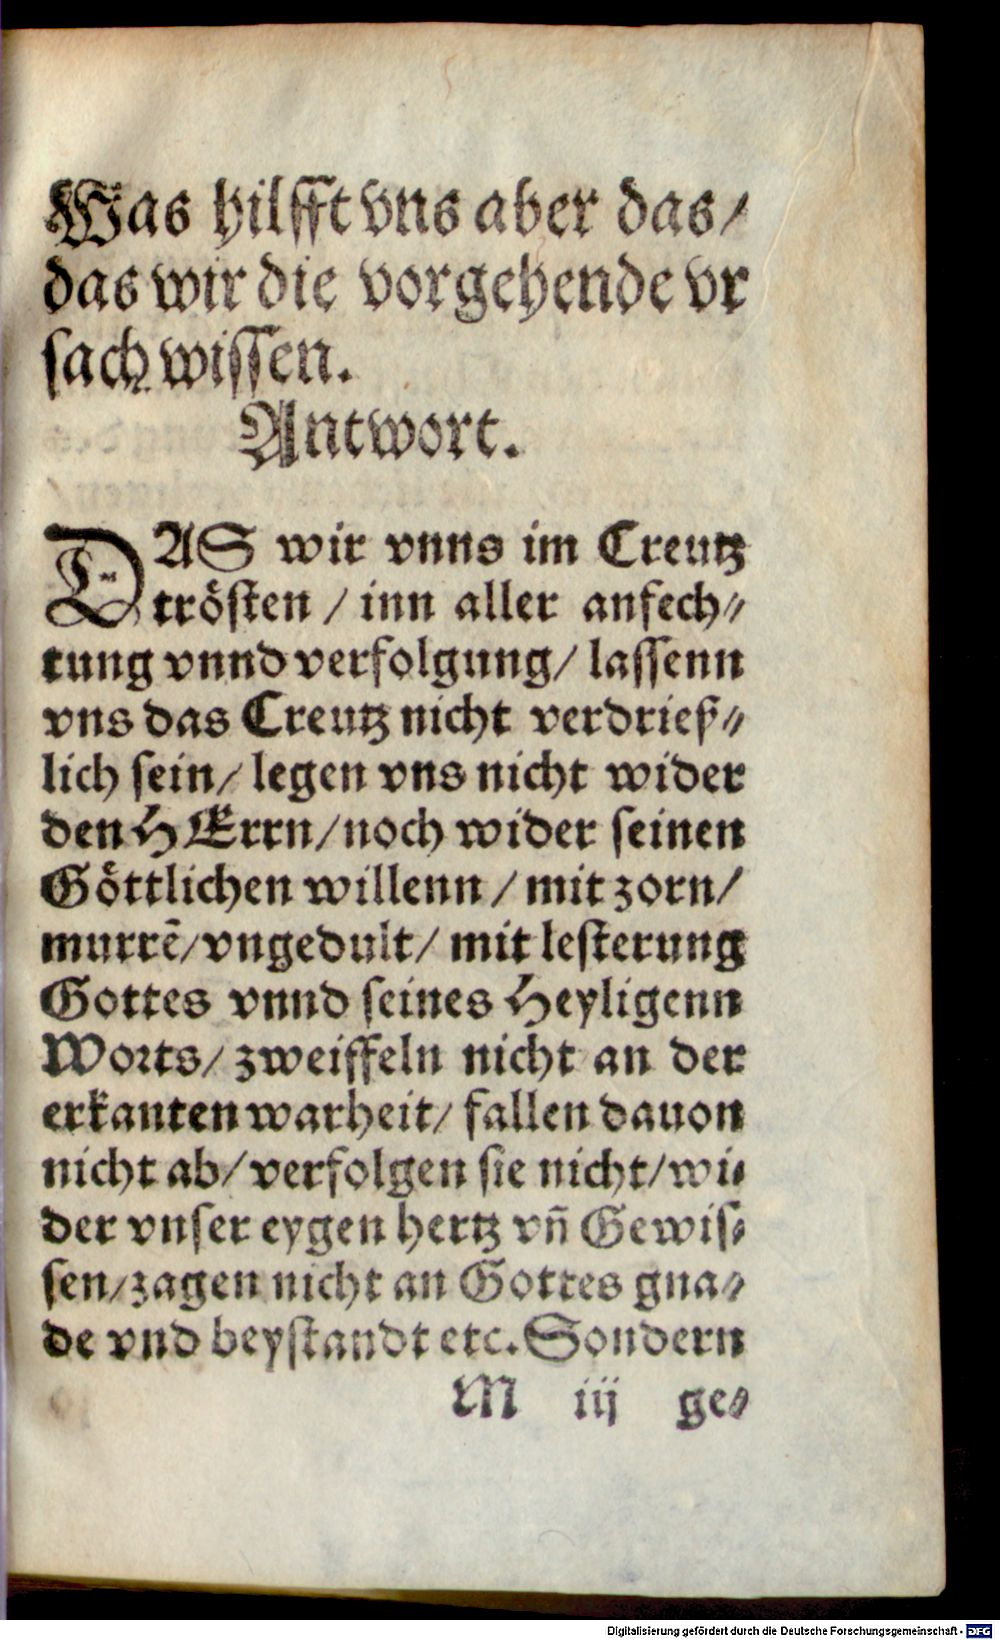 Was hilfft vns aber das/
das wir die vorgehende vr
sach wissen.
Antwort.
DAS wir vnns im Creutz
trösten / inn aller anfech⸗
tung vnnd verfolgung/ lassenn
vns das Creutz nicht verdrieß⸗
lich sein/ legen vns nicht wider
den HErrn/noch wider seinen
Göttlichen willenn / mit zorn/
murrẽ/vngedult/ mit lesterung
Gottes vnnd seines Heyligenn
Worts/ zweiffeln nicht an der
erkanten warheit/ fallen dauon
nicht ab/ verfolgen sie nicht/wi⸗
der vnser eygen hertz vñ Gewis⸗
sen/zagen nicht an Gottes gna⸗
de vnd beystandt etc. Sondern
M iij ge⸗
Digitalisierung gefördert durch die Deutsche Forschungsgemeinschaft - DFG